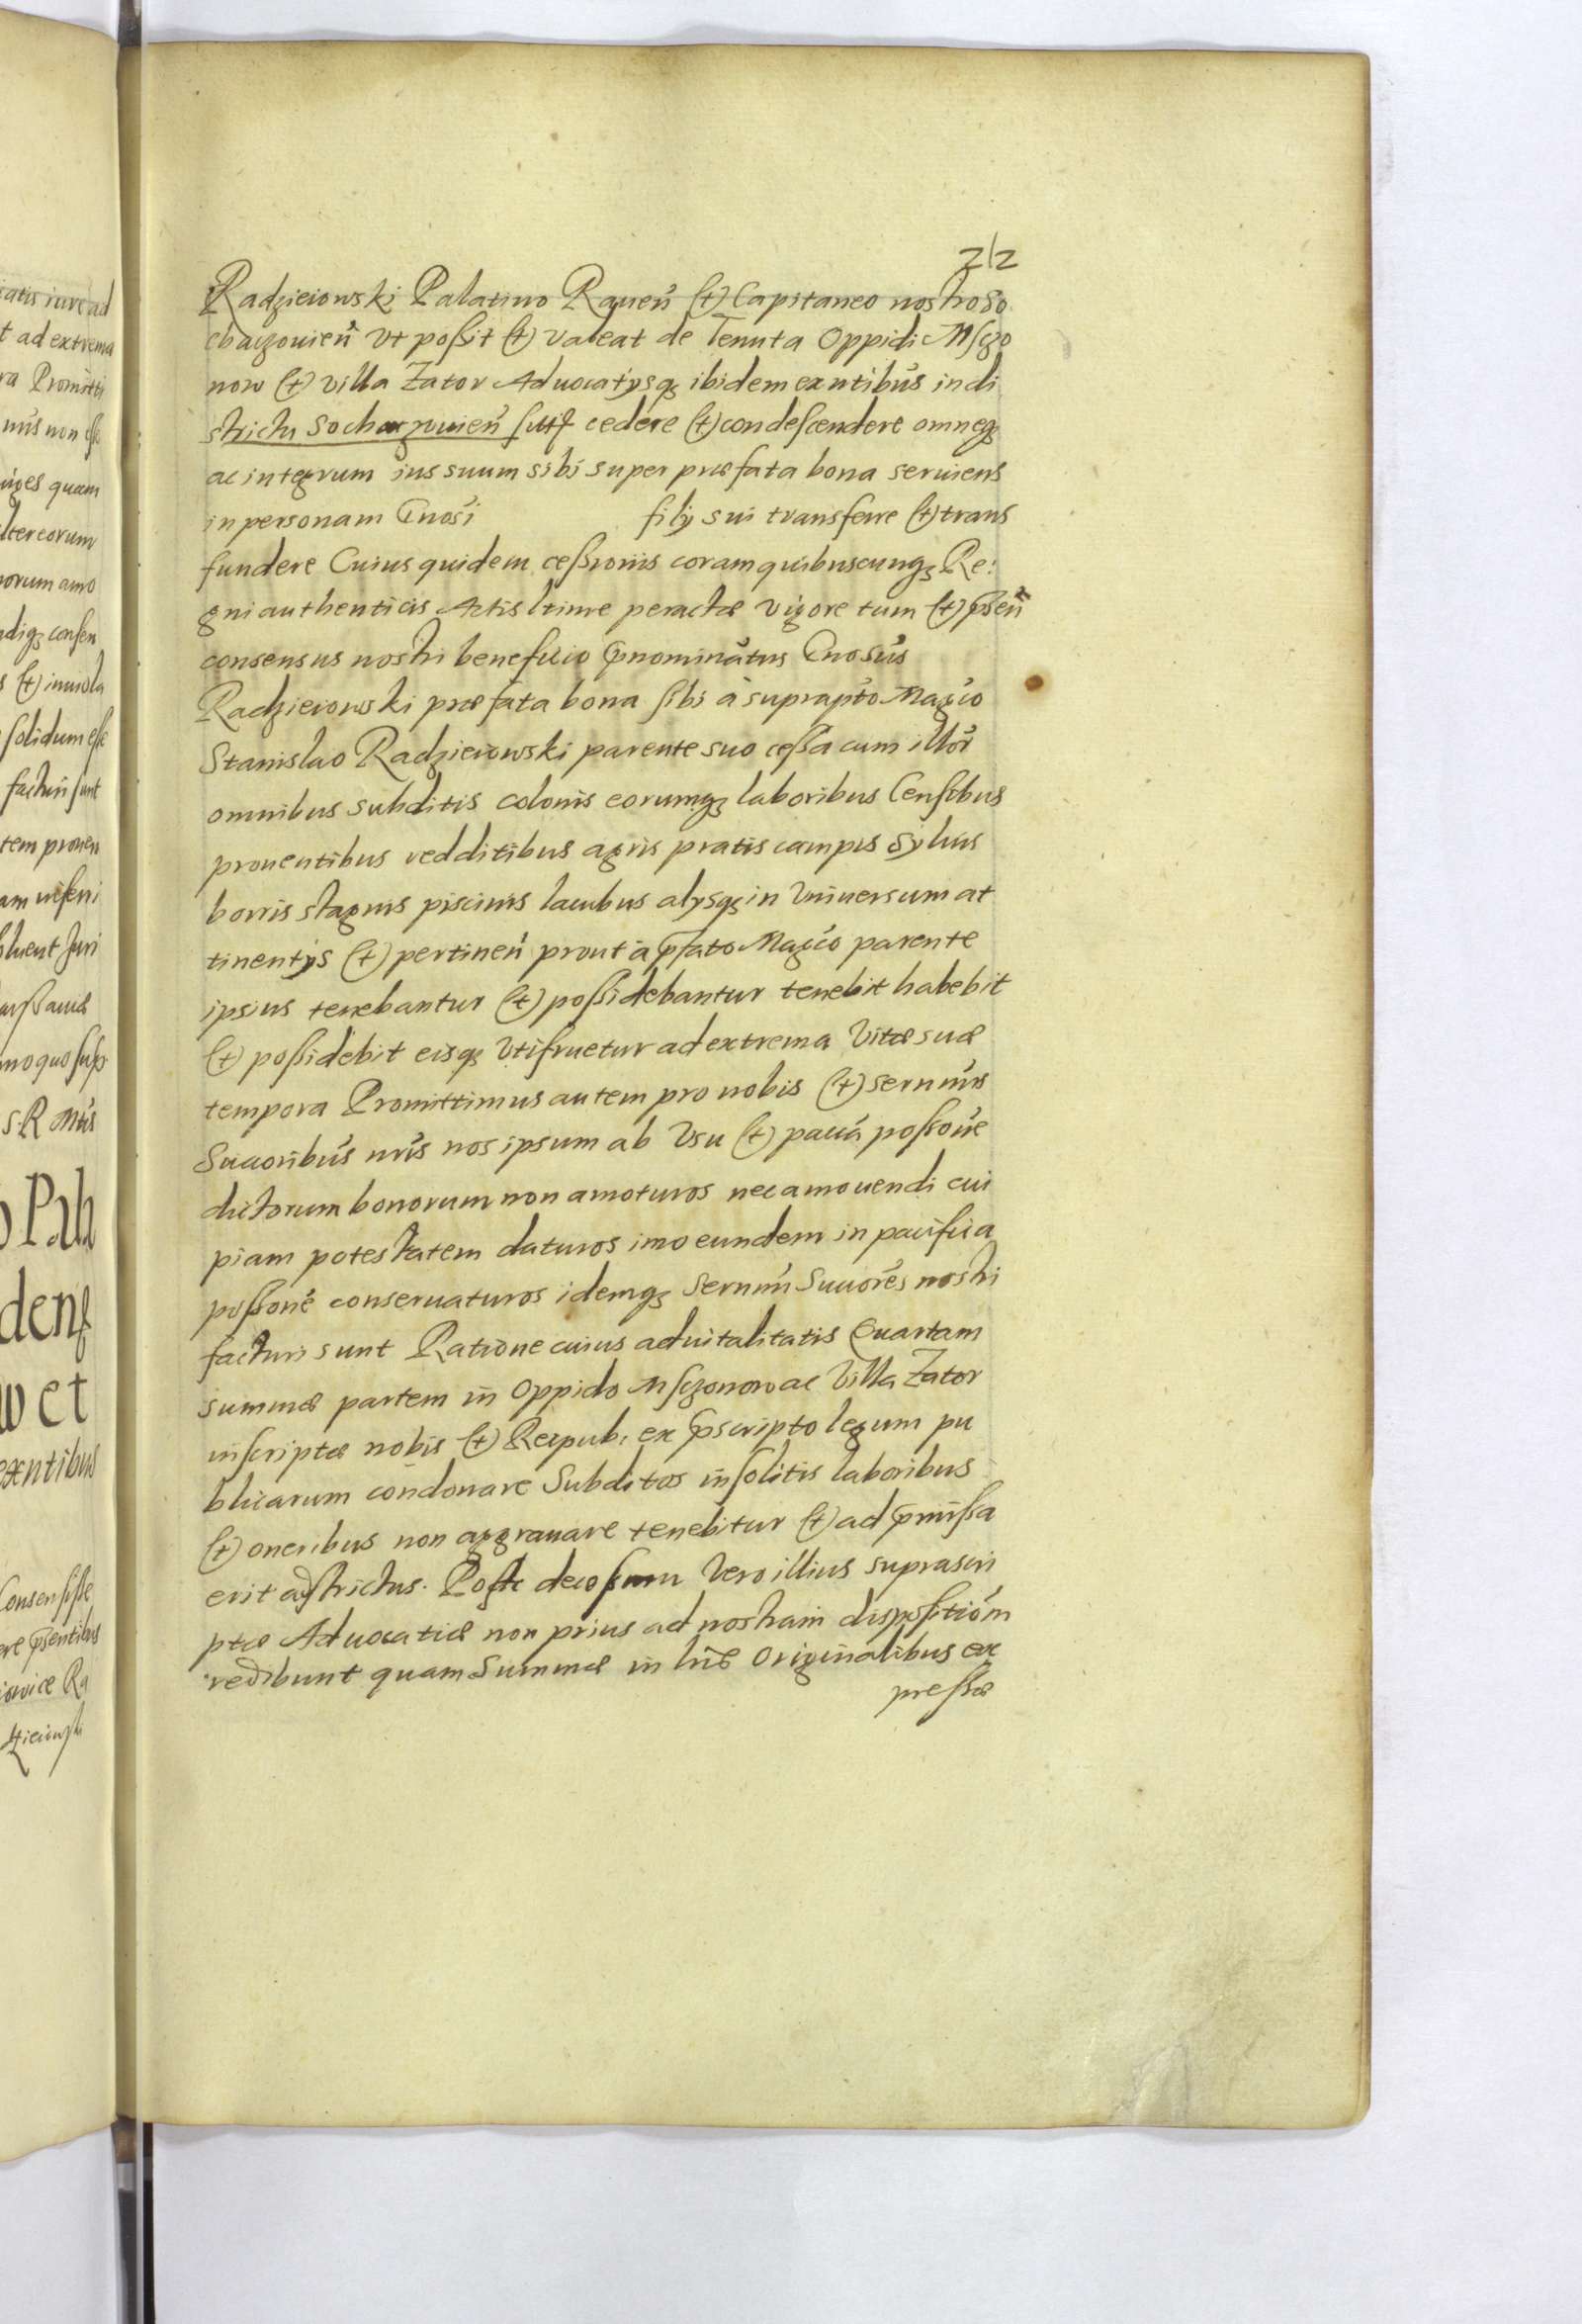 212
Radzieiowski Palatino Raueń (et) Capitaneo nostro So
chaczouień Vt possit (et) valeat de Tenuta Oppidi Msczo
now (et) villa Zator Aduocatijsqȝ ibidem exntibús in di
strictu Sochaczouień cedere (et) condescendere omneqȝ
ac integrum ius suum sibi super præfata bona seruiens
in personam Gnosi filij sui transferre (et) trans
fundere Cuius quidem cessionis coram quibuscunqȝ Re:
gni authenticis Actis ltime peractæ vigore tum (et) p̄sen̄
consensus nostri beneficio p̄nominatus Gnosús
Radzieiowski præfata bona sibi à suprapto Magco
Stanislao Radzieiowski parente suo cessa cum illor̄
omnibus subditis colonis eorumqȝ laboribus Censibus
prouentibus redditibus agris pratis campis Syluis
borris stagnis piscinis lacubus alijsqȝ in Vniuersum at
tinentijs (et) pertineń prout à p̄fato Magco parente
ipsius tenebantur (et) possidebantur tenebit habebit
(et) possidebit eisqȝ Vtifruetur ad extrema Vitæ suæ
tempora Promittimus autem pro nobis (et) Sernmis
Succoribús nris nos ipsum ab Vsu (et) pacca possone
dictorum bonorum non amoturos nec amouendi cui
piam potestatem daturos imo eundem in pacifica
possone conseruaturos idemqȝ Sernmi Succores nostri
facturi sunt Ratione cuius aduitalitatis Quartam
summæ partem in Oppido Msczonow ac Villa Zator
inscriptæ nobis (et) Reipub. ex p̄scripto legum pu
blicarum condonare Subditos insolitis laboribus
(et) oneribus non aggrauare tenebitur (et) ad p̄missa
erit adstrictus. Post decessum Vero illius suprascri
ptæ Aduocatiæ non prius ad nostram dispositiom
redibunt quam Summæ in lris Originalibus ex
pressæ